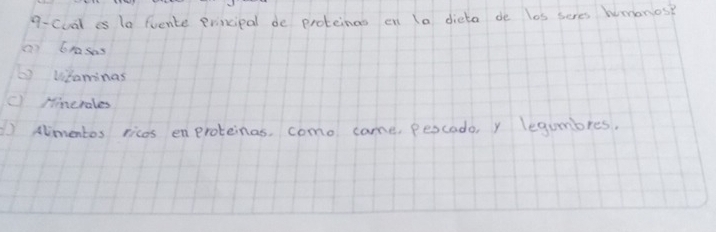 9-Cuál es la fuente principal de proteinas en la dieta de los seres humanos?
a) Grasas
b) Vitaminas
c) Minerales
d) Alimentos ricos en proteinas. como carne, pescado, y legumbres.